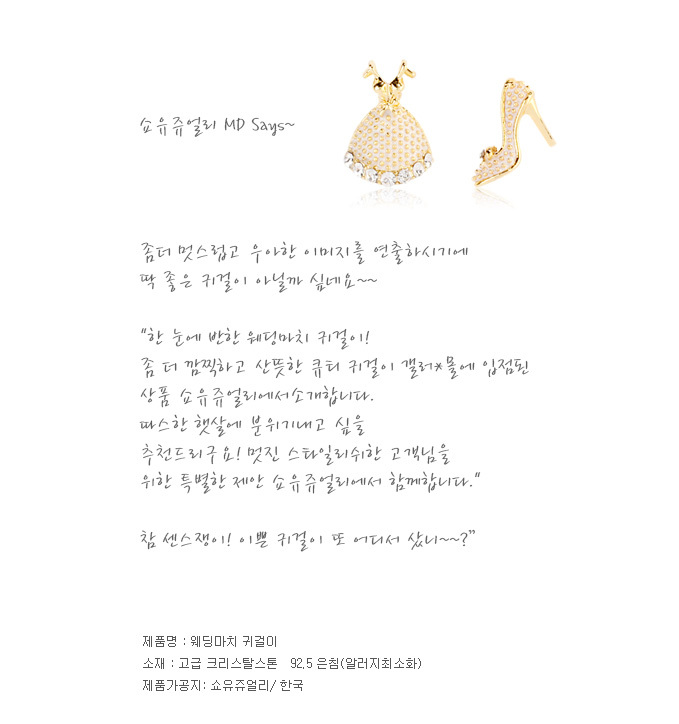 쇼유쥬얼리 MD Says~
좀더 멋스럽고 우아한 이미지를 연출하시기에
딱 좋은 귀걸이 아닐까 싶네요~~
"한 눈에 반한 웨딩마치 귀걸이!
좀 더 깜찍하고 산뜻한 큐티 귀걸이 갤러*몰에 입점된
상품 쇼유쥬얼리에서소개합니다.
따스한 햇살에 분위기내고 싶을
추천드리구요! 멋진 스타일리쉬한 고객님을
위한 특별한 제안 쇼유쥬얼리에서 함께합니다."
참 센스쟁이! 이쁜 귀걸이 또 어디서 샀니~~?"
제품명 : 웨딩마치 귀걸이
소재 : 고급 크리스탈스톤 92.5 은침(알러지최소화)
제품가공지: 쇼유쥬얼리/ 한국